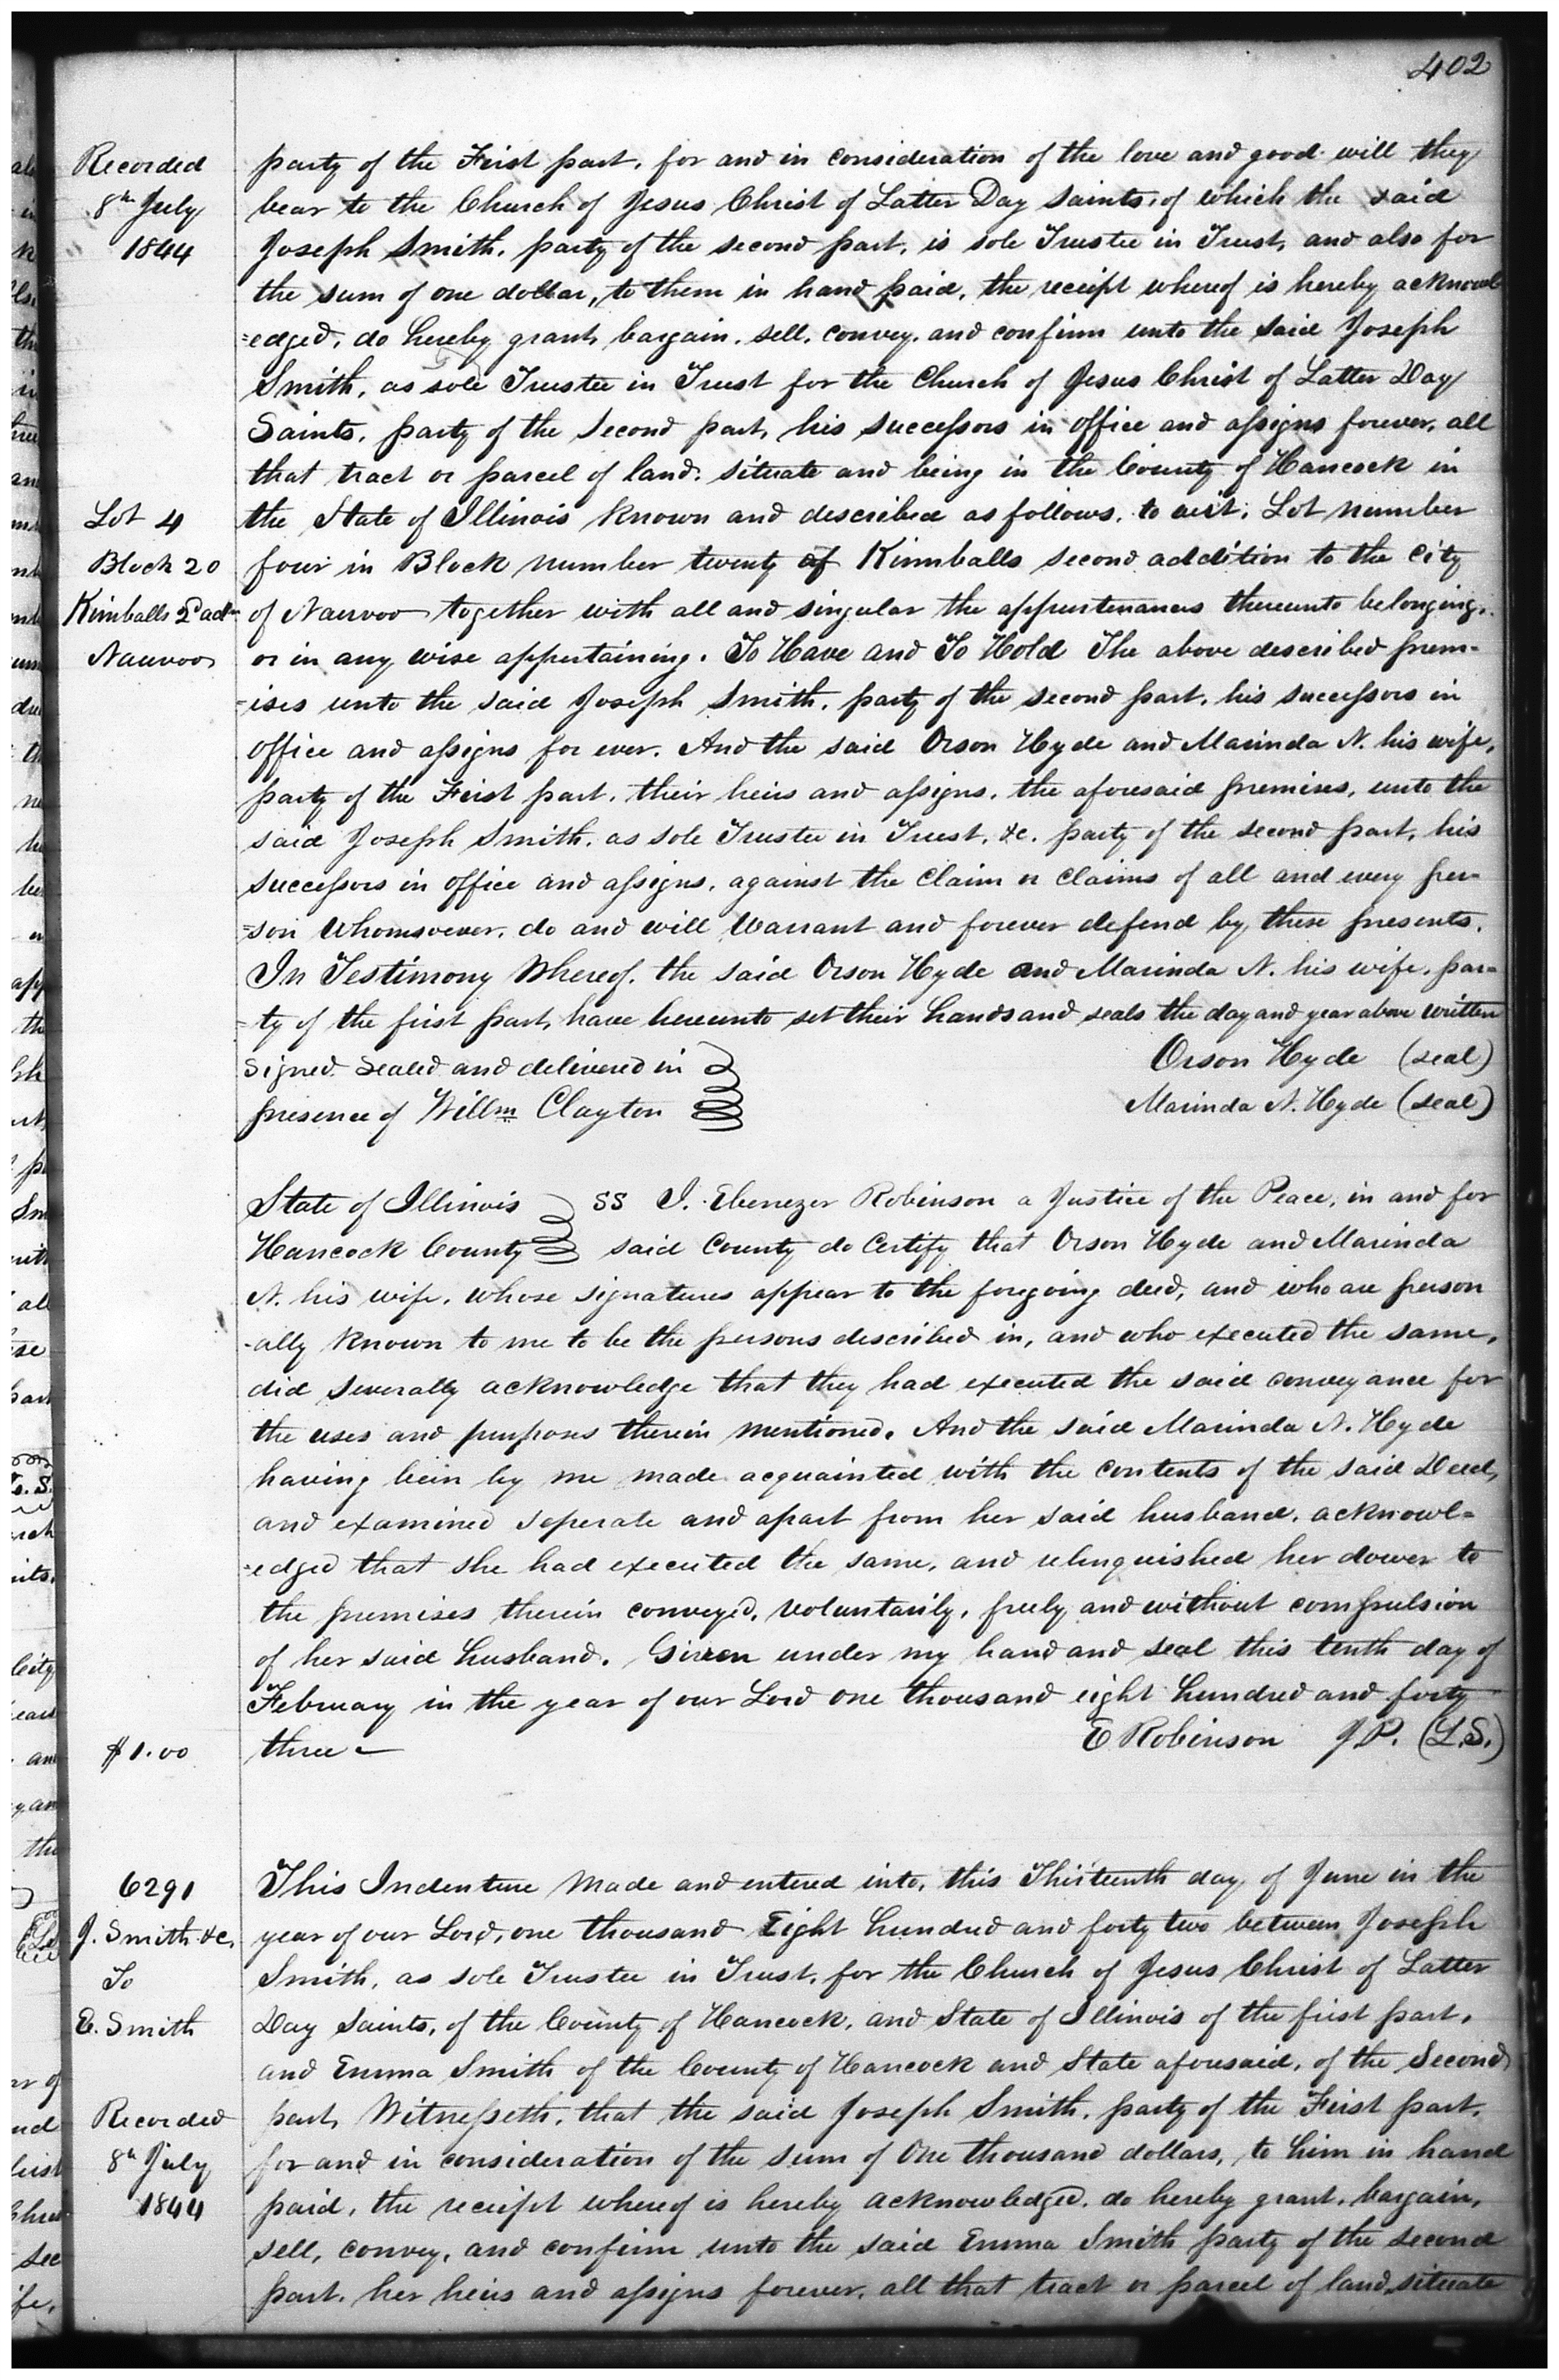 402
Recorded
8th July
1844
party of the First part, for and in consideration of the love and good will they
bear to the Church of Jesus Christ of Latter Day Saints, of which the said
Joseph Smith, party of the second part, is sole Trustee in Trust, and also for
the sum of one dollar, to them in hand paid, the receipt whereof is hereby acknowl
=edged, do hereby grant, bargain, sell, convey, and confirm unto the said Joseph
Smith, as sole Trustee in Trust for the Church of Jesus Christ of Latter Day
Saints, party of the second part, his successors in office and assigns forever, all
that tract or parcel of land, situate and being in the County of Hancock in
Lot 4
Block 20
Kimballs 2d adn
Nauvoo
the State of Illinois known and described as follows, to wit; Lot number
four in Block number twenty of Kimballs second addition to the City
of Nauvoo together with all and singular the appurtenances thereunto belonging,
or in any wise appertaining. To Have and To Hold The above described prem-
-ises unto the said Joseph Smith, party of the second part, his successors in
office and assigns for ever. And the said Orson Hyde and Marinda N. his wife,
party of the First part, their heirs and assigns, the aforesaid premises, unto the
said Joseph Smith, as sole Trustee in Trust, &c. party of the second part, his
successors in office and assigns, against the claim or claims of all and every per-
=son whomsoever, do and will warrant and forever defend by these presents.
In Testimony Whereof, the said Orson Hyde and Marinda N. his wife, par=
-ty of the first part, have hereunto set their hands and seals the day and year above written
Signed Sealed and delivered in
presence of Willm Clayton
Orson Hyde (seal)
Marinda N. Hyde (seal)
State of Illinois
Hancock County
SS I. Ebenezer Robinson a Justice of the Peace, in and for
said County do Certify that Orson Hyde and Marinda
N. his wife, whose signatures appear to the foregoing deed, and who are person
-ally known to me to be the persons described in, and who executed the same,
did severally acknowledge that they had executed the said conveyance for
the uses and purposes therein mentioned. And the said Marinda N. Hyde
having been by me made acquainted with the contents of the said Deed,
and examined seperate and apart from her said husband, acknowl=
-edged that she had executed the same, and relinquished her dower to
the premises therein conveyed, voluntarily, freely and without compulsion
of her said husband. Given under my hand and seal this tenth day of
February in the year of our Lord one thousand eight hundred and forty
$1.00
three
E Robinson J.P. (L.S.)
6291
J. Smith &c.
To
E. Smith
Recorded
8th July
1844
This Indenture Made and entered into, this Thirteenth day of June in the
year of our Lord, one thousand Eight hundred and forty two between Joseph
Smith, as sole Trustee in Trust, for the Church of Jesus Christ of Latter
Day Saints, of the County of Hancock, and State of Illinois of the first part,
and Emma Smith of the County of Hancock and State aforesaid, of the Second
part, Witnesseth, that the said Joseph Smith, party of the First part,
for and in consideration of the sum of One thousand dollars, to him in hand
paid, the receipt whereof is hereby acknowledged, do hereby grant, bargain,
sell, convey, and confirm unto the said Emma Smith party of the second
part, her heirs and assigns forever, all that tract or parcel of land, situate